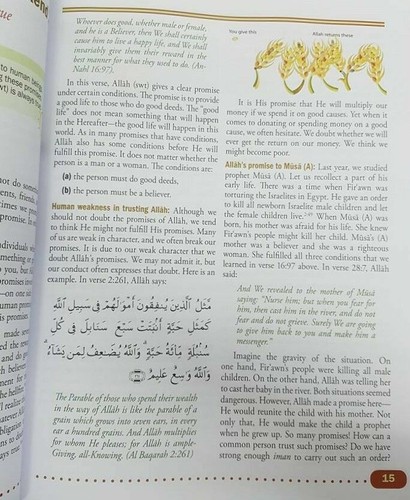 Whoever does good, whether male or female,
and he is a Believer, then We shall certainly
cause him to live a happy life, and We shall
invariably give them their reward in the
best manner for what they used to do. (An-
Nahl 16:97).
In this verse, Allāh (swt) gives a clear promise
under certain conditions. The promise is to provide
a good life to those who do good deeds. The "good
life" does not mean something that will happen
in the Hereafter—the good life will happen in this
world. As in many promises that have conditions,
Allāh also has some conditions before He will
fulfill this promise. It does not matter whether the
person is a man or a woman. The conditions are:
(a) the person must do good deeds.
(b) the person must be a believer.
Human weakness in trusting Allāh: Although we
should not doubt the promises of Allāh, we tend
to think He might not fulfill His promises. Many
of us are weak in character, and we often break our
promises. It is due to our weak character that we
doubt Allāh's promises. We may not admit it, but
our conduct often expresses that doubt. Here is an
example. In verse 2:261, Allāh says:
مَثَلُ ٱلَّذِينَ يُنفِقُونَ أَمْوَٰلَهُمْ فِي سَبِيلِ ٱللَّهِ
كَمَثَلِ حَبَّةٍ أَنۢبَتَتْ سَبْعَ سَنَابِلَ فِي كُلِّ
سُنۢبُلَةٍ مِّا۟ئَةُ حَبَّةٍ ۗ وَٱللَّهُ يُضَٰعِفُ لِمَن يَشَآءُ ۗ
وَٱللَّهُ وَٰسِعٌ عَلِيمٌ ﴿٢٦١﴾
The Parable of those who spend their wealth
in the way of Allāh is like the parable of a
grain which grows into seven ears, in every
ear a hundred grains. And Allāh multiplies
for whom He pleases; for Allāh is ample-
Giving, all-Knowing. (Al Baqarah 2:261)
You give this
Allah returns these
It is His promise that He will multiply our
money if we spend it on good causes. Yet when it
comes to donating or spending money on a good
cause, we often hesitate. We doubt whether we will
ever get the return on our money. We think we
might become poor.
Allāh's promise to Mūsā (A): Last year, we studied
prophet Mūsā (A). Let us recollect a part of his
early life. There was a time when Fir'awn was
torturing the Israelites in Egypt. He gave an order
to kill all newborn Israelite male children and let
the female children live. When Mūsā (A) was
born, his mother was afraid for his life. She knew
Fir'awn's people might kill her child. Mūsā's (A)
mother was a believer and she was a righteous
woman. She fulfilled all three conditions that we
learned in verse 16:97 above. In verse 28:7, Allāh
said:
And We revealed to the mother of Mūsā
saying: "Nurse him; but when you fear for
him, then cast him in the river, and do not
fear and do not grieve. Surely We are going
to give him back to you and make him a
messenger."
Imagine the gravity of the situation. On
one hand, Fir'awn's people were killing all male
children. On the other hand, Allāh was telling her
to cast her baby in the river. Both situations seemed
dangerous. However, Allāh made a promise here—
He would reunite the child with his mother. Not
only that, He would make the child a prophet
when he grew up. So many promises! How can a
common person trust such promises? Do we have
strong enough iman to carry out such an order?
15